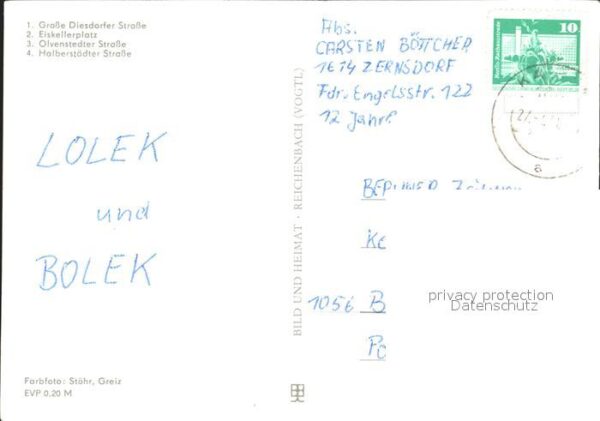 1. Große Diesdorfer Straße
2. Eiskellerplatz
3. Olvenstedter Straße
4. Halberstädter Straße
LOLEK
und
BOLEK
Farbfoto: Stöhr, Greiz
EVP 0,20 M
BILD UND HEIMAT · REICHENBACH (VOGTL)
Abs.
CARSTEN BÖTTCHER
1614 ZERNSDORF
Fdr. Engelsstr. 122
12 Jahre
10
BERLINER
1056 B
privacy protection
Datenschutz